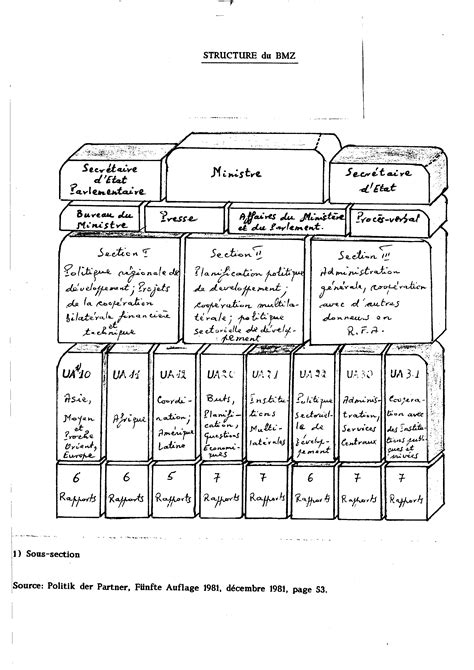 STRUCTURE du BMZ
Secrétaire
d'Etat
Parlementaire
Ministre
Secrétaire
d'Etat
Bureau du
Ministre
Presse
Affaires du Ministère
et du Parlement.
Procès-verbal
Section I
Politique régionale de
développement; Projets
de la coopération
bilatérale financière
et
technique
Section II
Planification politique
de développement;
coopération multila-
térale; politique
sectorielle de dévelop-
pement
Section III
Administration
générale, coopération
avec d'autres
donneurs en
R.F.A.
UA 1) 10
Asie,
Moyen
et
Proche
Orient,
Europe
UA 11
Afrique
UA 12
Coordi-
nation;
Amérique
Latine
UA 20
Buts,
Planifi-
cation,
Questions
Économi-
ques
UA 21
Institu-
tions
Multi-
latérales
UA 22
Politique
Sectoriel-
le de
dévelop-
pement
UA 30
Adminis-
tration,
Services
Centraux
UA 31
Coopera-
tion avec
des Institu-
tions publi-
ques et
privées
6
Rapports
6
Rapports
5
Rapports
7
Rapports
7
Rapports
6
Rapports
7
Rapports
7
Rapports
1) Sous-section
Source: Politik der Partner, Fünfte Auflage 1981, décembre 1981, page 53.